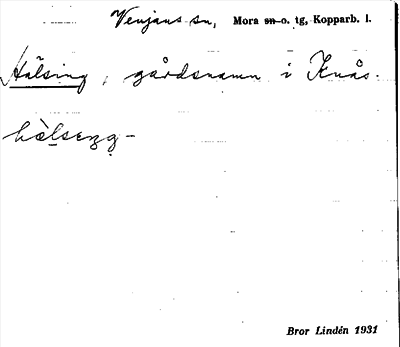 Venjans sn, Mora sn o. tg, Kopparb. l.
Hälsing, gårdsnamn i Knås.
Bror Lindén 1931